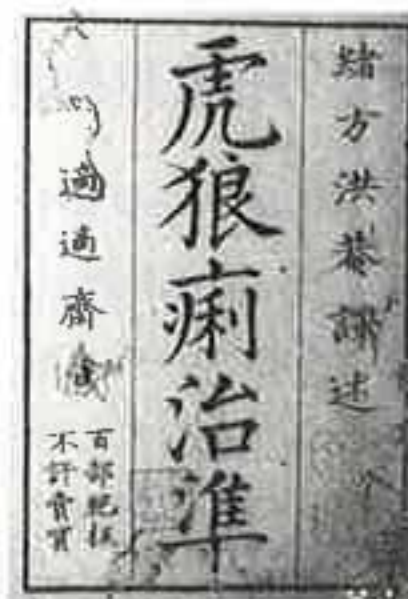 緒方洪菴譯述
虎狼痢治準
適適齋藏
百部絶板
不許賣買